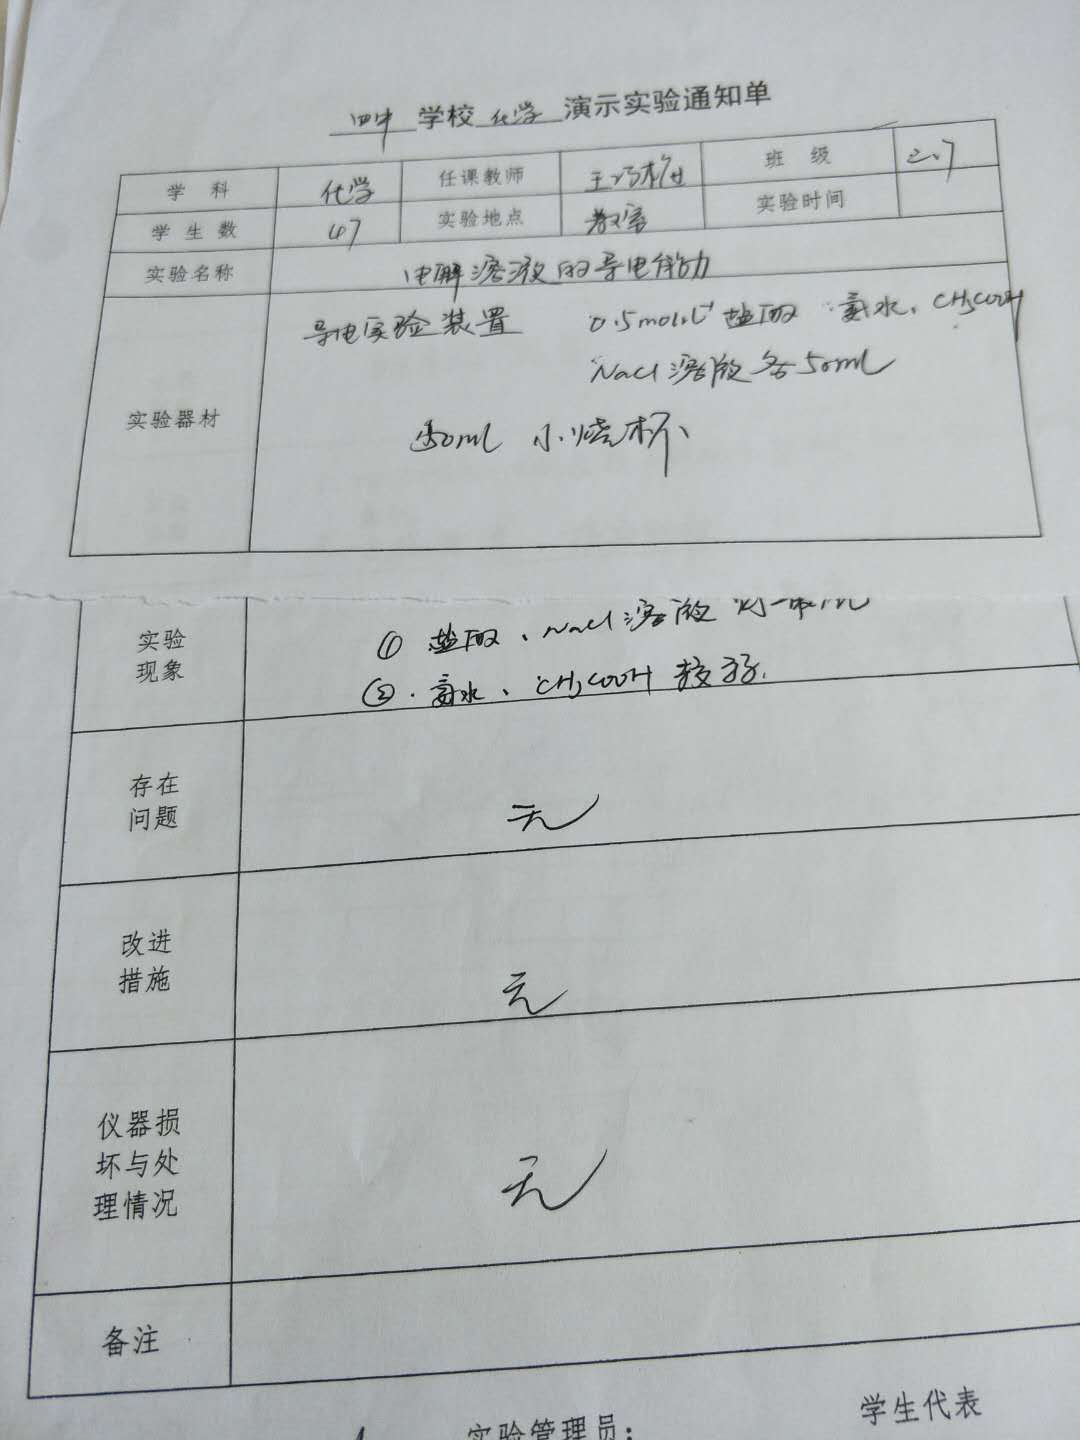 四中 学校 化学 演示实验通知单
学 科 化学 任课教师 班 级
学 生 数 47 实验地点 教室 实验时间
实验名称 电解溶液的导电能力
导电实验装置 0.5mol·L⁻¹盐酸 氨水、CH₃COOH
NaCl溶液各50ml
实验器材 50ml 小烧杯、
实验 ① 盐酸、NaCl溶液
现象 ②. 氨水、CH₃COOH 较弱.
存在
问题 无
改进
措施 无
仪器损
坏与处
理情况 无
备注
实验管理员：
学生代表